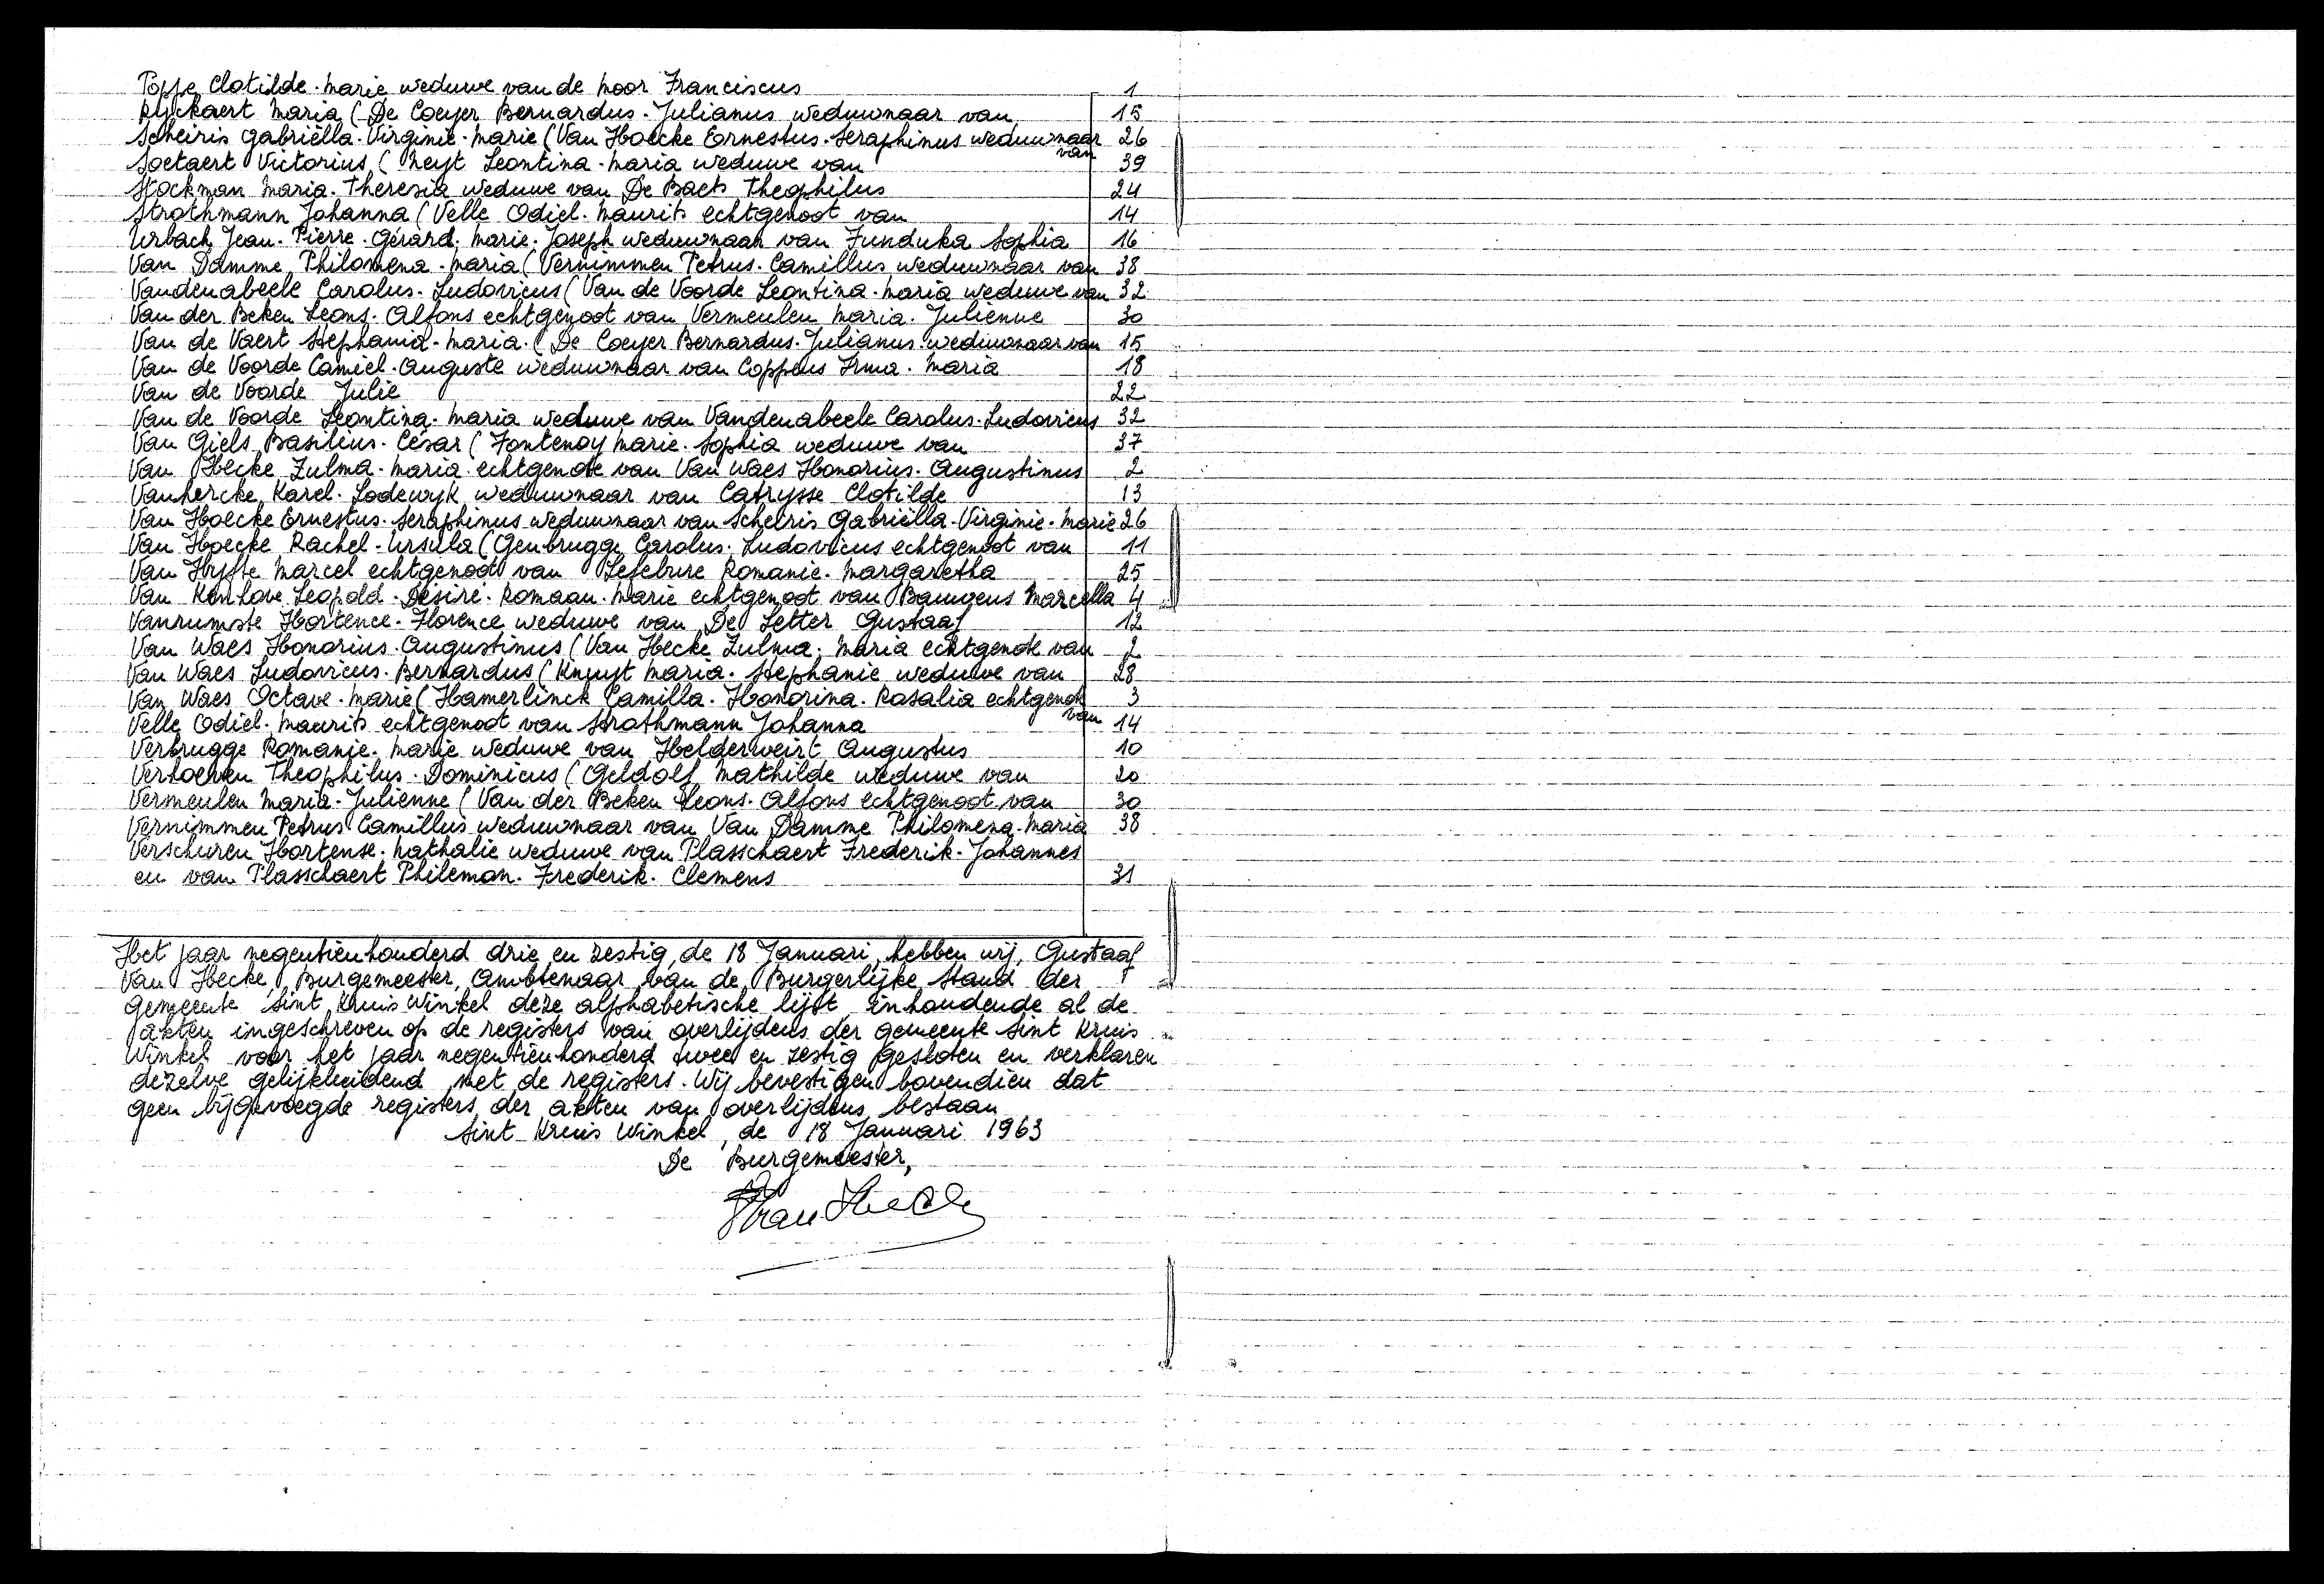 Poppe Clotilde-Marie weduwe van de Moor Franciscus 1
Ryckaert Maria (De Coeyer Bernardus-Julianus weduwnaar van 15
Scheiris Gabriëlla-Virginie-Marie (Van Hoecke Ernestus-Seraphinus weduwnaar van 26
Soetaert Victorius (Neyt Leontina-Maria weduwe van 39
Stockman Maria-Theresia weduwe van De Baets Theophilus 24
Strothmann Johanna (Velle Odiel-Maurits echtgenoot van 14
Urbach Jean-Pierre-Gérard-Marie-Joseph weduwnaar van Funduka Sophia 16
Van Damme Philomena-Maria (Vernimmen Petrus-Camillus weduwnaar van 38
Vandenabeele Carolus-Ludovicus (Van de Voorde Leontina-Maria weduwe van 32
Van der Beken Leons-Alfons echtgenoot van Vermeulen Maria-Julienne 30
Van de Vaert Stephania-Maria (De Coeyer Bernardus-Julianus weduwnaar van 15
Van de Voorde Camiel-Auguste weduwnaar van Coppens Irma-Maria 18
Van de Voorde Julie 22
Van de Voorde Leontina-Maria weduwe van Vandenabeele Carolus-Ludovicus 32
Van Giels Basilius-César (Fontenoy Marie-Sophia weduwe van 37
Van Hecke Zulma-Maria echtgenote van Van Waes Honorius-Augustinus 2
Vanhercke Karel-Lodewyk weduwnaar van Catrysse Clotilde 13
Van Hoecke Ernestus-Seraphinus weduwnaar van Scheiris Gabriëlla-Virginie-Marie 26
Van Hoecke Rachel-Ursula (Genbrugge Carolus-Ludovicus echtgenoot van 11
Van Hyfte Marcel echtgenoot van Lefebure Romanie-Margaretha 25
Van Kenhove Leopold-Désiré-Romaan-Marie echtgenoot van Bauwens Marcella 4
Vanrumste Hortence-Florence weduwe van De Letter Gustaaf 12
Van Waes Honorius-Augustinus (Van Hecke Zulma-Maria echtgenote van 2
Van Waes Ludovicus-Bernardus (Knuyt Maria-Stephanie weduwe van 28
Van Waes Octave-Marie (Hamerlinck Camilla-Honorina-Rosalia echtgenote van 3
Velle Odiel-Maurits echtgenoot van Strothmann Johanna 14
Verbrugge Romanie-Marie weduwe van Helderweirt Augustus 10
Verhoeven Theophilus-Dominicus (Geldolf Mathilde weduwe van 20
Vermeulen Maria-Julienne (Van der Beken Leons-Alfons echtgenoot van 30
Vernimmen Petrus Camillus weduwnaar van Van Damme Philomena-Maria 38
Verschuren Hortense-Nathalie weduwe van Plasschaert Frederik-Johannes
en van Plasschaert Phileman-Frederik-Clemens 31
Het jaar negentienhonderd drie en zestig, de 18 Januari, hebben wij, Gustaaf
Van Hecke, Burgemeester, Ambtenaar van de Burgerlijke Stand der
gemeente Sint Kruis Winkel deze alphabetische lijst, inhoudende al de
akten ingeschreven op de registers van overlijdens der gemeente Sint Kruis
Winkel voor het jaar negentienhonderd twee en zestig gesloten en verklaren
dezelve gelijkluidend met de registers. Wij bevestigen bovendien dat
geen bijgevoegde registers der akten van overlijdens bestaan
Sint Kruis Winkel, de 18 Januari 1963
De Burgemeester,